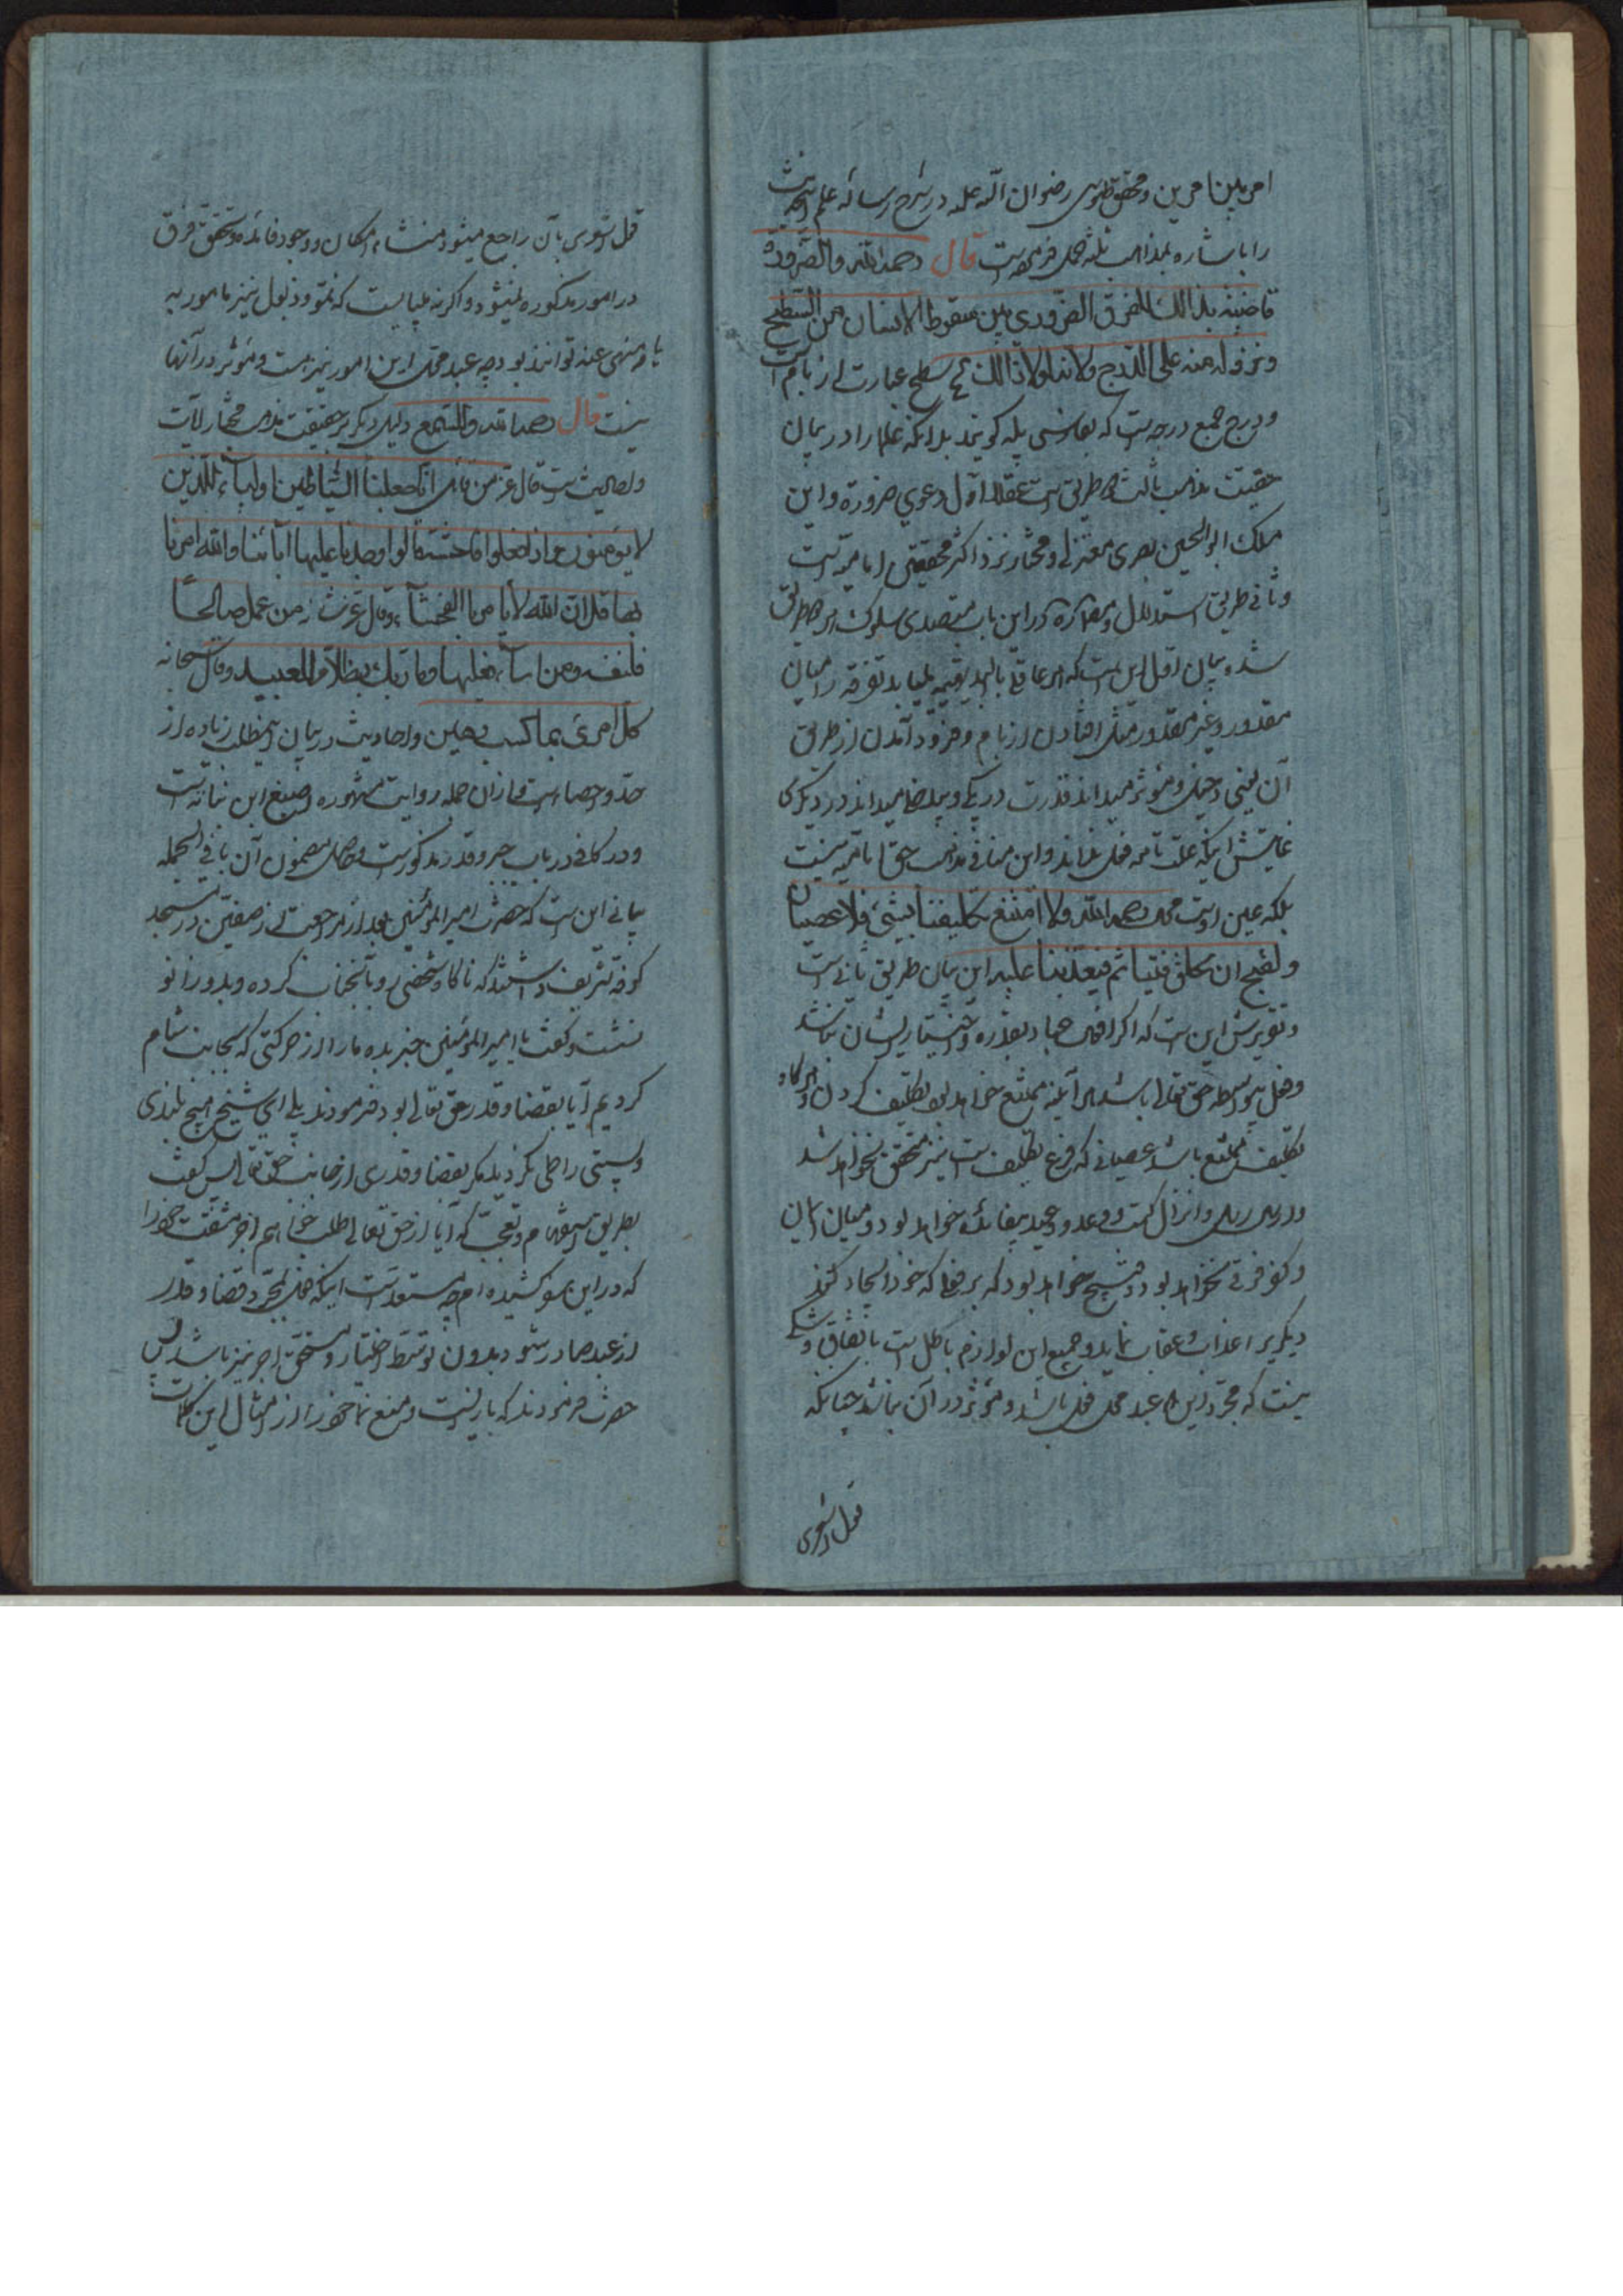 امر بین امرین و محقق طوسی رضوان الله علیه در شرح رساله علم این حدیث
را باشاره بمذاهب ثلثه حمل فرموده است قال رحمه الله والضرورة
قاضیة بذالك للفرق الضروری بین سقوط الانسان من السطح
ونزوله منه علی الدرج ولانه لولا ذالك سطح عبارت از بام است
و درج جمع درجه است که بفارسی پله کویند بدانکه علما را در بیان
حقیت مذهب ثالث دو طریق است عقلا اول دعوی ضرورة و این
مسلك ابوالحسین بصری معتزلی و مختار نزد اکثر محققین امامیه است
و ثانی طریق استدلال و مصنف در این باب متصدی سلوك هر دو طریق
شده بیان اول این است که هر عاقلی بالبدیهه مییابد تفرقه را میان
مقدور و غیر مقدور مثل افتادن از بام و فرود آمدن از طریق
آن یعنی دخیل و مؤثر میداند قدرت در یکی و بیدخل میداند در دیکری
غایتش اینکه علت تامه فعل نداند و این منافی مذهب حق امامیه نیست
بلکه عین اوست قال رحمه الله ولا امتنع تکلیفنا بشیء فلا عصیان
ولقبح ان یخلق فینا ثم یعذبنا علیه این بیان طریق ثانی است
و تقریرش این است که اکر افعال عباد بقدره و اختیار ایشان نباشد
و فعل بیواسطه حق تعالی باشد هر آینه ممتنع خواهد بود تکلیف کردن و هر کاه
تکلیف ممتنع باشد عصیانی که فرع تکلیف است نیز متحقق نخواهد شد
و ارسال رسل و انزال کتب و وعد و وعید بیفائده خواهد بود و میان ایمان
و کفر فرقی نخواهد بود و قبیح خواهد بود که بر فعلی که خود ایجاد کند
دیکری را عذاب و عقاب نماید و جمیع این لوازم باطل است باتفاق و شکی
نیست که مجرد این که عبد محل فعل باشد و مؤثر در آن نباشد چنانکه
قول اشعری
قول اشعری بآن راجع میشود منشاء امکان و وجود فائده و تحقق فرق
در امور مذکوره نمیشود و اکر نه میبایست که نمو و ذبول نیز مامور به
یا منهی عنه توانند بود چه عبد محل این امور نیز هست و مؤثر در آنها
نیست قال رحمه الله والسمع دلیل دیکر بر حقیقت مذهب مختار آیات
و احادیث است قال عز من قائل انا جعلنا الشیاطین اولیاء للذین
لا یؤمنون واذا فعلوا فاحشة قالوا وجدنا علیها آبائنا والله امرنا
بها قل ان الله لا یامر بالفحشاء وقال عز شانه من عمل صالحا
فلنفسه ومن اساء فعلیها وما ربك بظلام للعبید وقال سبحانه
کل امرئ بما کسب رهین و احادیث در بیان این مطلب زیاده از
حد و احصاء است و از آن جمله روایت مشهوره اصبغ ابن نباته است
و در کافی در باب جبر و قدر مذکور است و حاصل مضمون آن با فی الجمله
بیانی این است که حضرت امیر المؤمنین بعد از مراجعت از صفین در مسجد
کوفه تشریف داشتند که ناکاه شخصی رو بآنجناب کرده و بدو زانو
نشست و کفت یا امیر المؤمنین خبر بده ما را از حرکتی که بجانب شام
کردیم آیا بقضا و قدر حق تعالی بود فرمودند بلی ای شیخ هیچ بلندی
و پستی را طی نکردید مکر بقضا و قدری از جانب حق تعالی پس کفت
بطریق استفهام و تعجب که آیا از حق تعالی طلب خواهم اجر مشقت خود را
که در این سفر کشیده ام چه مستبعد است اینکه فعل بمجرد قضا و قدر
از عبد صادر شود بدون توسط اختیار و مستحق اجر نیز باشد پس
حضرت فرمودند که باز ایست و منع نما خود را از امثال این کلمات